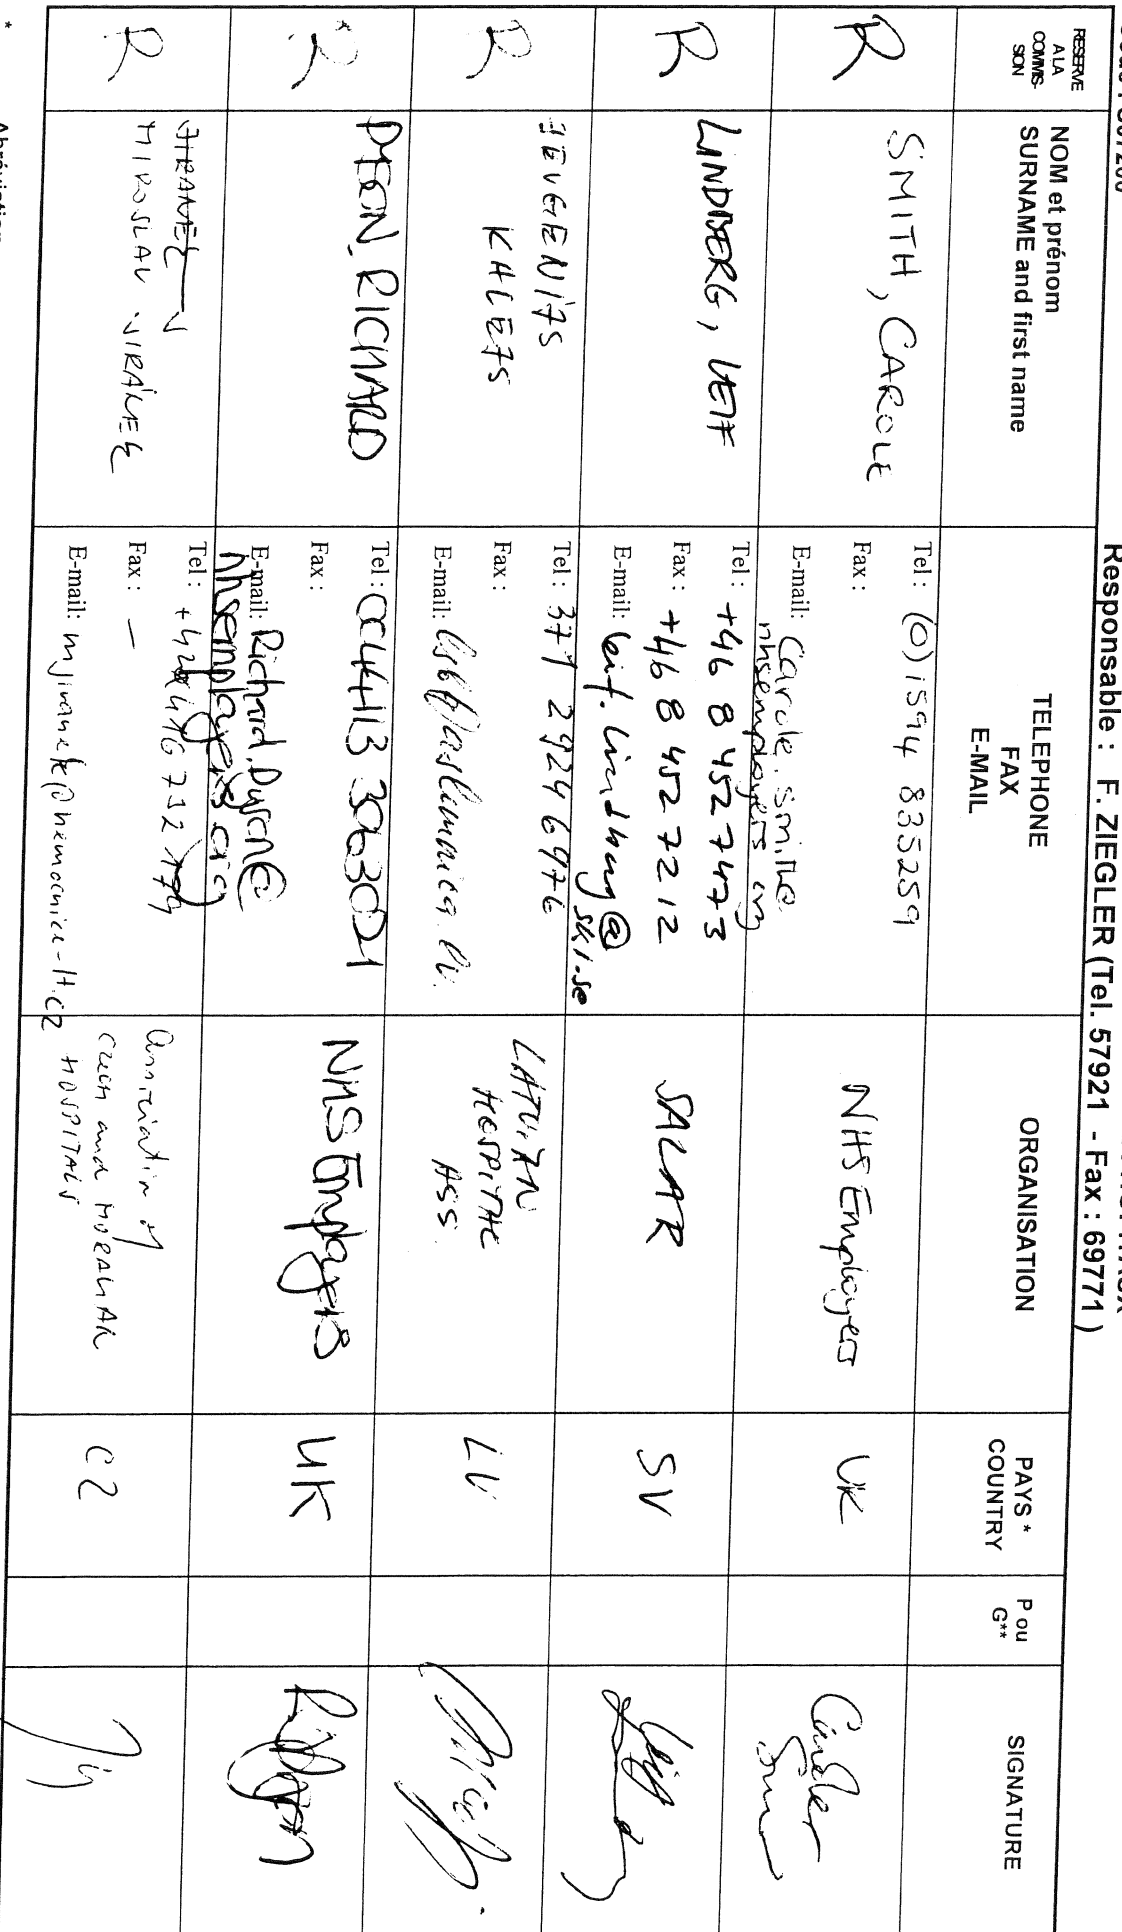 Responsable : F. ZIEGLER (Tel. 57921 - Fax : 69771 )
RESERVE
A LA
COMMIS-
SION
NOM et prénom
SURNAME and first name
TELEPHONE
FAX
E-MAIL
ORGANISATION
PAYS *
COUNTRY
P ou
G**
SIGNATURE
R
SMITH, CAROLE
Tel : (0)1594 835259
Fax :
E-mail: Carole.Smith@
nhsemployers.org
NHS Employers
UK
R
LINDBERG, LEIF
Tel : +46 8 452 7473
Fax : +46 8 452 7212
E-mail: leif.lindberg@
skl.se
SALAR
SV
R
JEVGENIJS
KALEJS
Tel : 371 29246976
Fax :
E-mail:
LATVIAN
HOSPITAL
ASS.
LV
R
DYSON, RICHARD
Tel : 0044113 3063021
Fax :
E-mail: Richard.Dyson@
nhsemployers.org
NHS Employers
UK
R
JIRÁNEK
MIROSLAV JIRÁNEK
Tel :
Fax : —
E-mail: mjiranek@nemocnice-lt.cz
Association of
Czech and MORAVIAN
HOSPITALS
CZ
* Abréviation